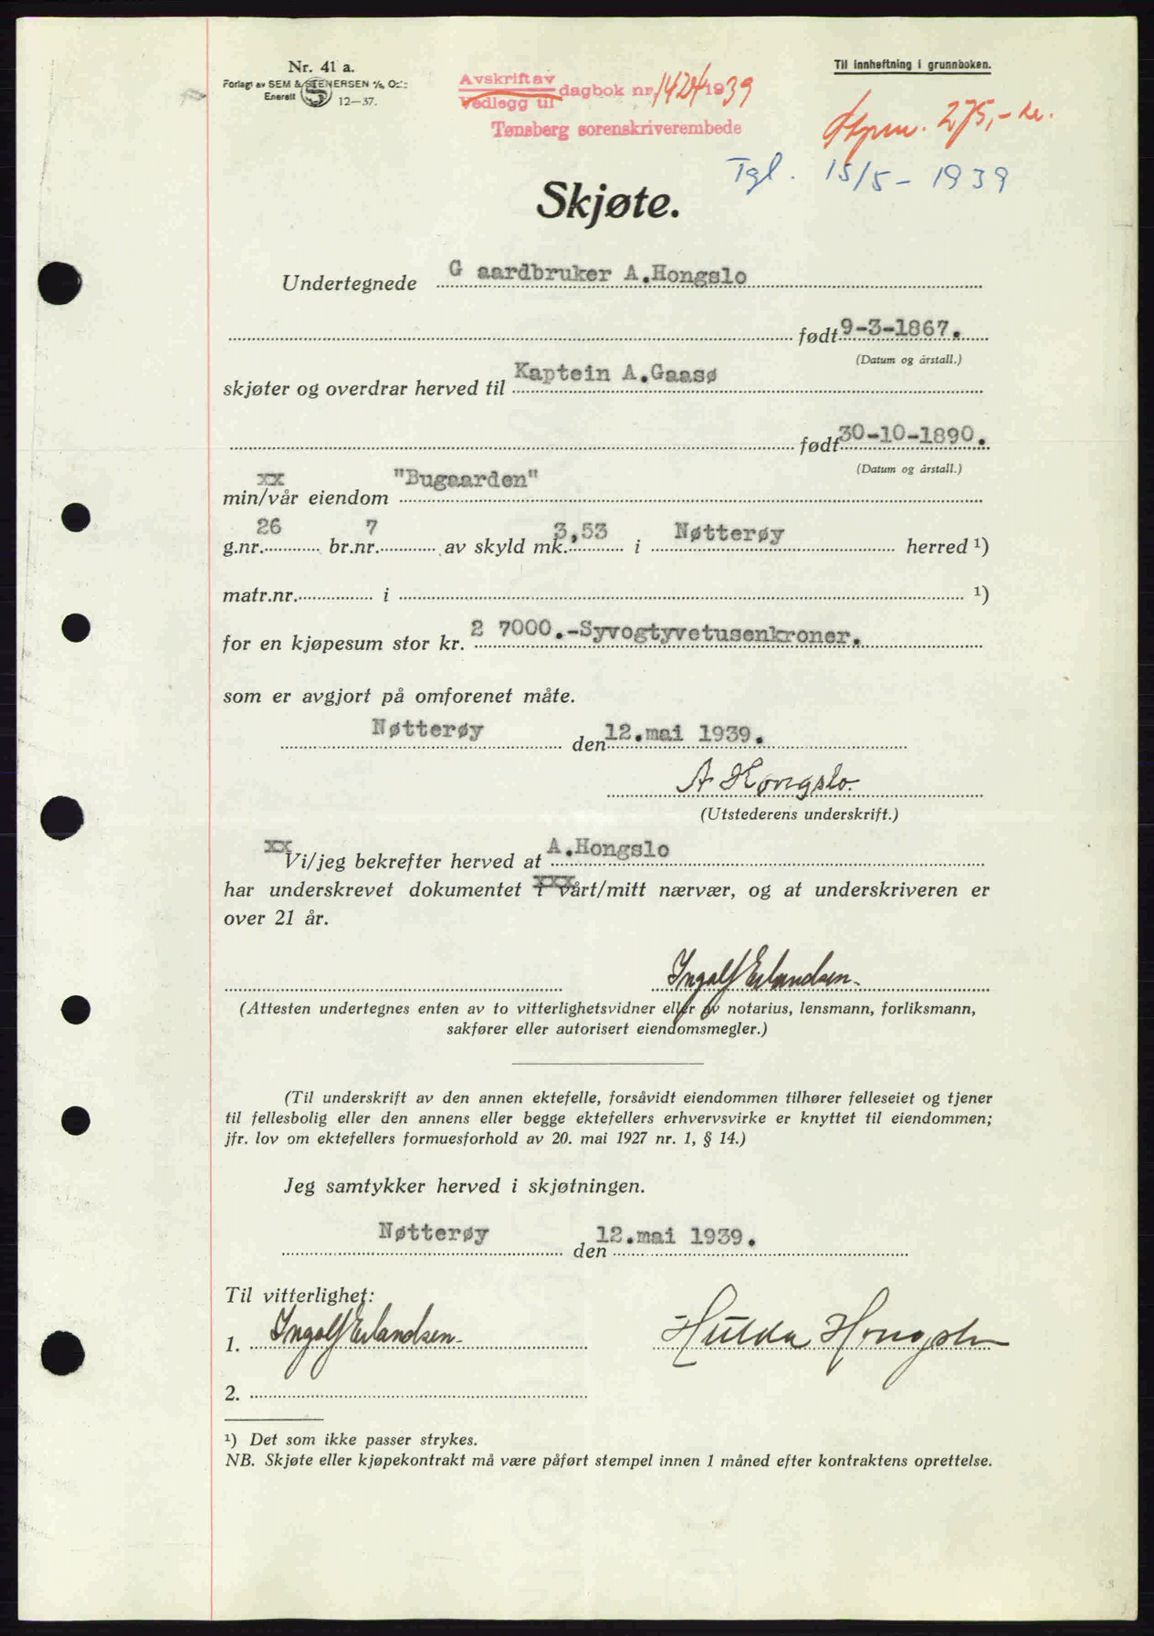 Nr. 41 a.
Forlagt av SEM & STENERSEN A/S, Oslo
Enerett 12—37.
Til innheftning i grunnboken.
Avskrift av
Vedlegg til dagbok nr. 1424 1939
Tønsberg sorenskriverembede
275,- kr.
Tgl. 15/5 - 1939
Skjøte.
Undertegnede G aardbruker A.Hongslo
født 9-3-1867.
(Datum og årstall.)
skjøter og overdrar herved til Kaptein A.Gaasø
født 30-10-1890.
(Datum og årstall.)
xx
min/vår eiendom "Bugaarden"
g.nr. 26 br.nr. 7 av skyld mk. 3,53 i Nøtterøy herred ¹)
matr.nr. i ¹)
for en kjøpesum stor kr. 2 7000.-Syvogtyvetusenkroner.
som er avgjort på omforenet måte.
Nøtterøy den 12.mai 1939.
A Hongslo.
(Utstederens underskrift.)
xx Vi/jeg bekrefter herved at A.Hongslo
har underskrevet dokumentet i vårt/mitt nærvær, og at underskriveren er
over 21 år.
Ingolf Erlandsen.
(Attesten undertegnes enten av to vitterlighetsvidner eller av notarius, lensmann, forliksmann,
sakfører eller autorisert eiendomsmegler.)
(Til underskrift av den annen ektefelle, forsåvidt eiendommen tilhører felleseiet og tjener
til fellesbolig eller den annens eller begge ektefellers erhvervsvirke er knyttet til eiendommen;
jfr. lov om ektefellers formuesforhold av 20. mai 1927 nr. 1, § 14.)
Jeg samtykker herved i skjøtningen.
Nøtterøy den 12.mai 1939.
Til vitterlighet:
1. Ingolf Erlandsen. Hulda Hongslo
2.
¹) Det som ikke passer strykes.
NB. Skjøte eller kjøpekontrakt må være påført stempel innen 1 måned efter kontraktens oprettelse.